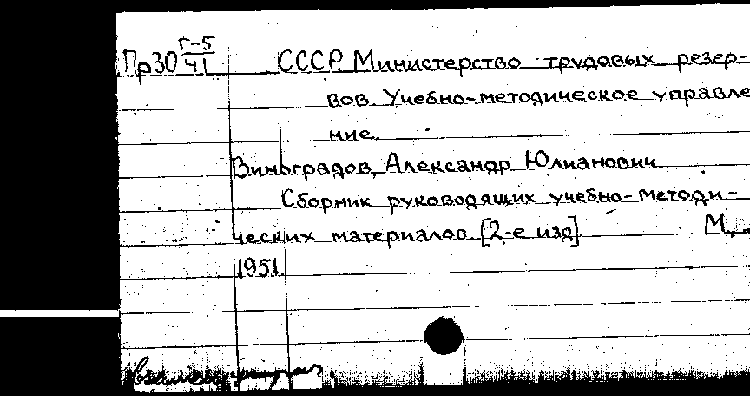 Пр30 Г-5/41 СССР Министерство трудовых резер-
вов. Учебно-методическое управле
ние.
Виноградов, Александр Юлианович
Сборник руководящих учебно-методи-
ческих материалов. [2-е изд]. М.,
1951.